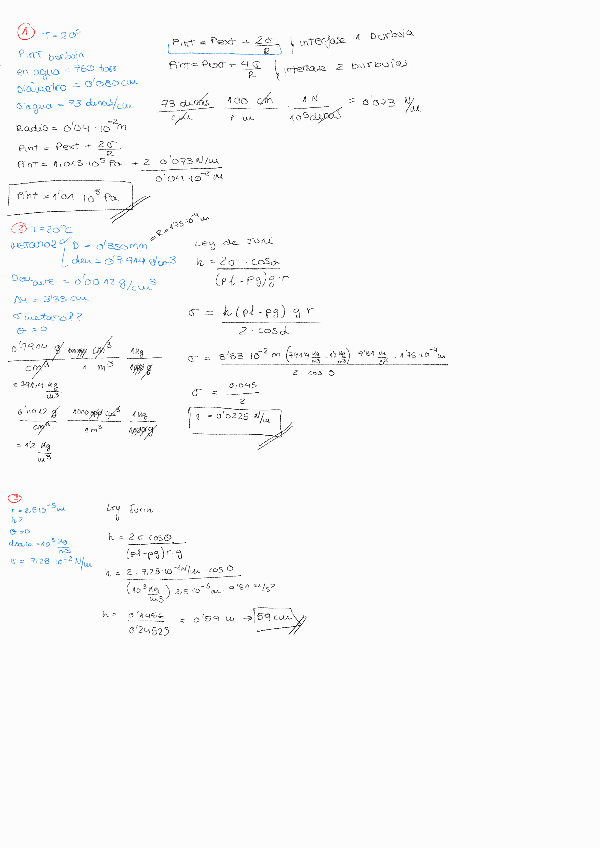 ① T=20°
Pint burbuja
en agua = 760 torr
Diámetro = 0'080 cm
σ agua = 73 dinas/cm
Radio = 0'04·10⁻² m
Pint = Pext + 2σ/R
Pint = 1.013·10⁵ Pa + 2 · 0'073 N/m / 0'04·10⁻² m
Pint = 1'01·10⁵ Pa
Pint = Pext + 2σ/R } interfase 1 burbuja
Pint = Pext + 4σ/R } interfase 2 burbujas
73 dinas/cm · 100 cm/1 m · 1 N/10⁵ dinas = 0'073 N/m
② T=20°C
metanol D = 0'350 mm → R=1'75·10⁻⁴ m
den = 0'7914 g/cm³
Den aire = 0'0012 g/cm³
Δh = 3'33 cm
σ metanol?
θ = 0
0'7914 g/cm³ · cm³/1 m³ · 1 kg/g
= 791'4 kg/m³
0'0012 g/cm³ · cm³/1 m³ · 1 kg/g
= 1'2 kg/m³
Ley de Jurin
h = 2σ·cosα/(ρl-ρg)g·r
σ = h(ρl-ρg) g r/2·cosα
2 cos 0
σ = 0.045/2
= 0'0225 N/m
③
r = 2'5·10⁻⁵ m
h?
θ=0
dagua = 10³ kg/m³
σ = 7'28·10⁻² N/m
Ley Jurin
h = 2σ cosθ/(ρl-ρg) r g
h = 2 · 7'28·10⁻² N/m cos 0/(10³ kg/m³) 2'5·10⁻⁵ m · 9'81 m/s²
h = 0'1456/0'24525 = 0'59 m → 59 cm